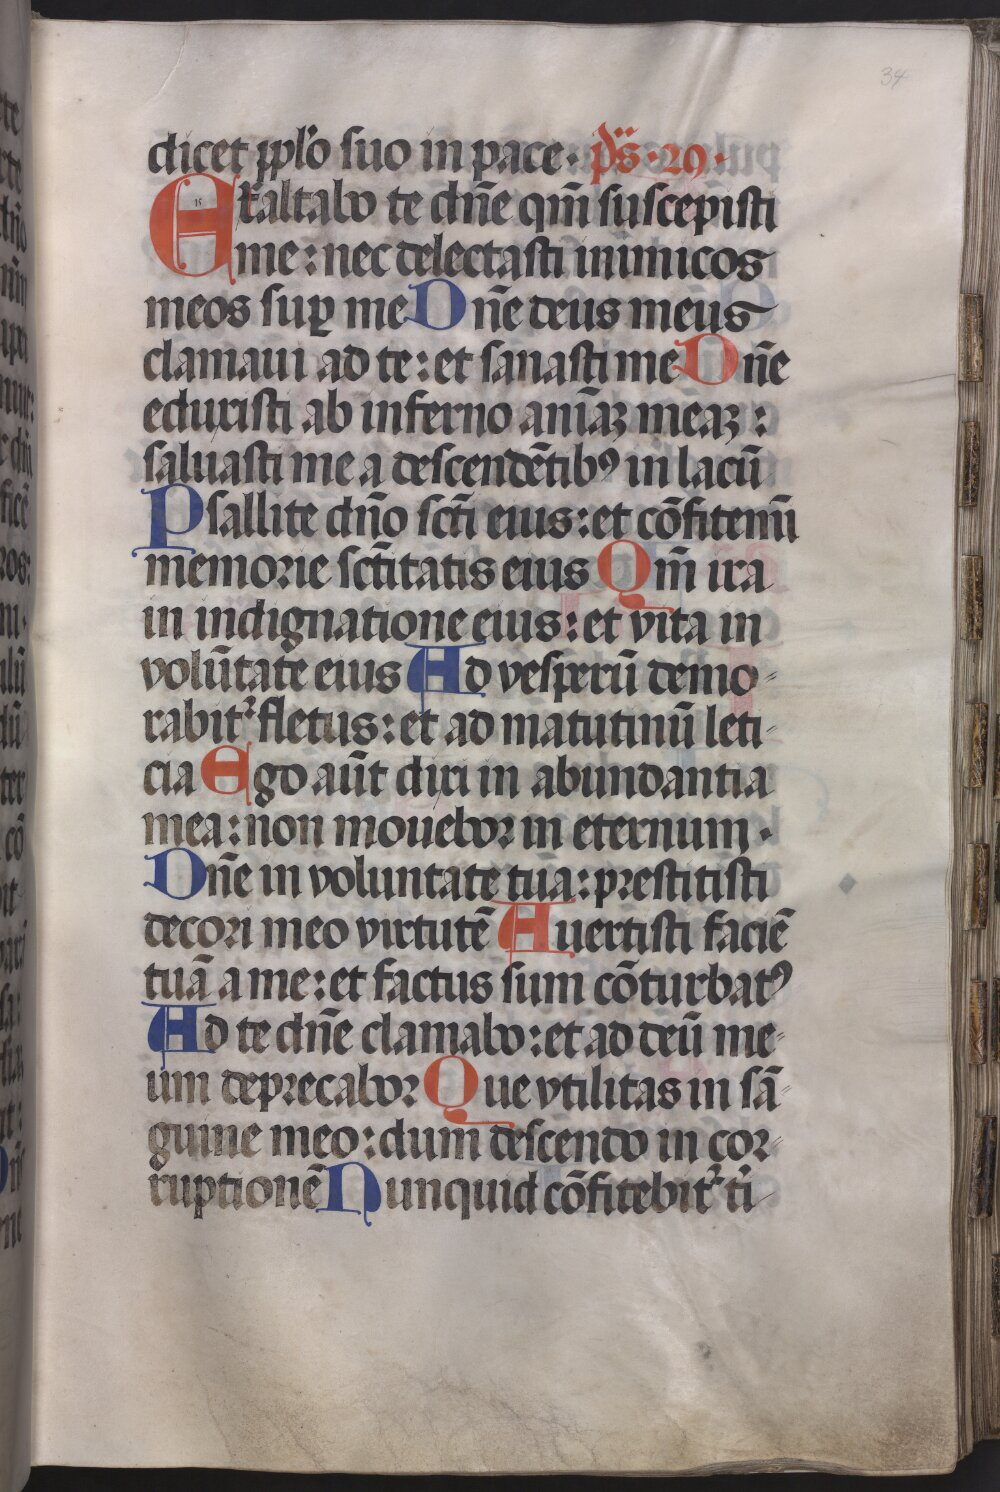 34
dicet pplo suo in pace · ps · 29 ·
Exaltabo te dn̄e qm̄ suscepisti
me : nec delectasti inimicos
meos suꝑ me Dn̄e deus meus
clamaui ad te : et sanasti me Dn̄e
eduxisti ab inferno anīaꝫ meaꝫ :
saluasti me a descendētibꝰ in lacū
Psallite dn̄o sc̄ti eius : et cōfitemī
memorie sc̄titatis eius Qm̄ ira
in indignatione eius : et vita in
volūtate eius Ad vesperū demo-
rabit᷑ fletus : et ad matutinū leti-
cia Ego aūt dixi in abundantia
mea : non mouebor in eternum ·
Dn̄e in voluntate tua : prestitisti
decori meo virtutē Auertisti faciē
tuā a me : et factus sum cōturbatꝰ
Ad te dn̄e clamabo : et ad deū me-
um deprecabor Que vtilitas in sā-
guine meo : dum descendo in cor-
ruptionē Nunquid cōfitebit᷑ t̄i